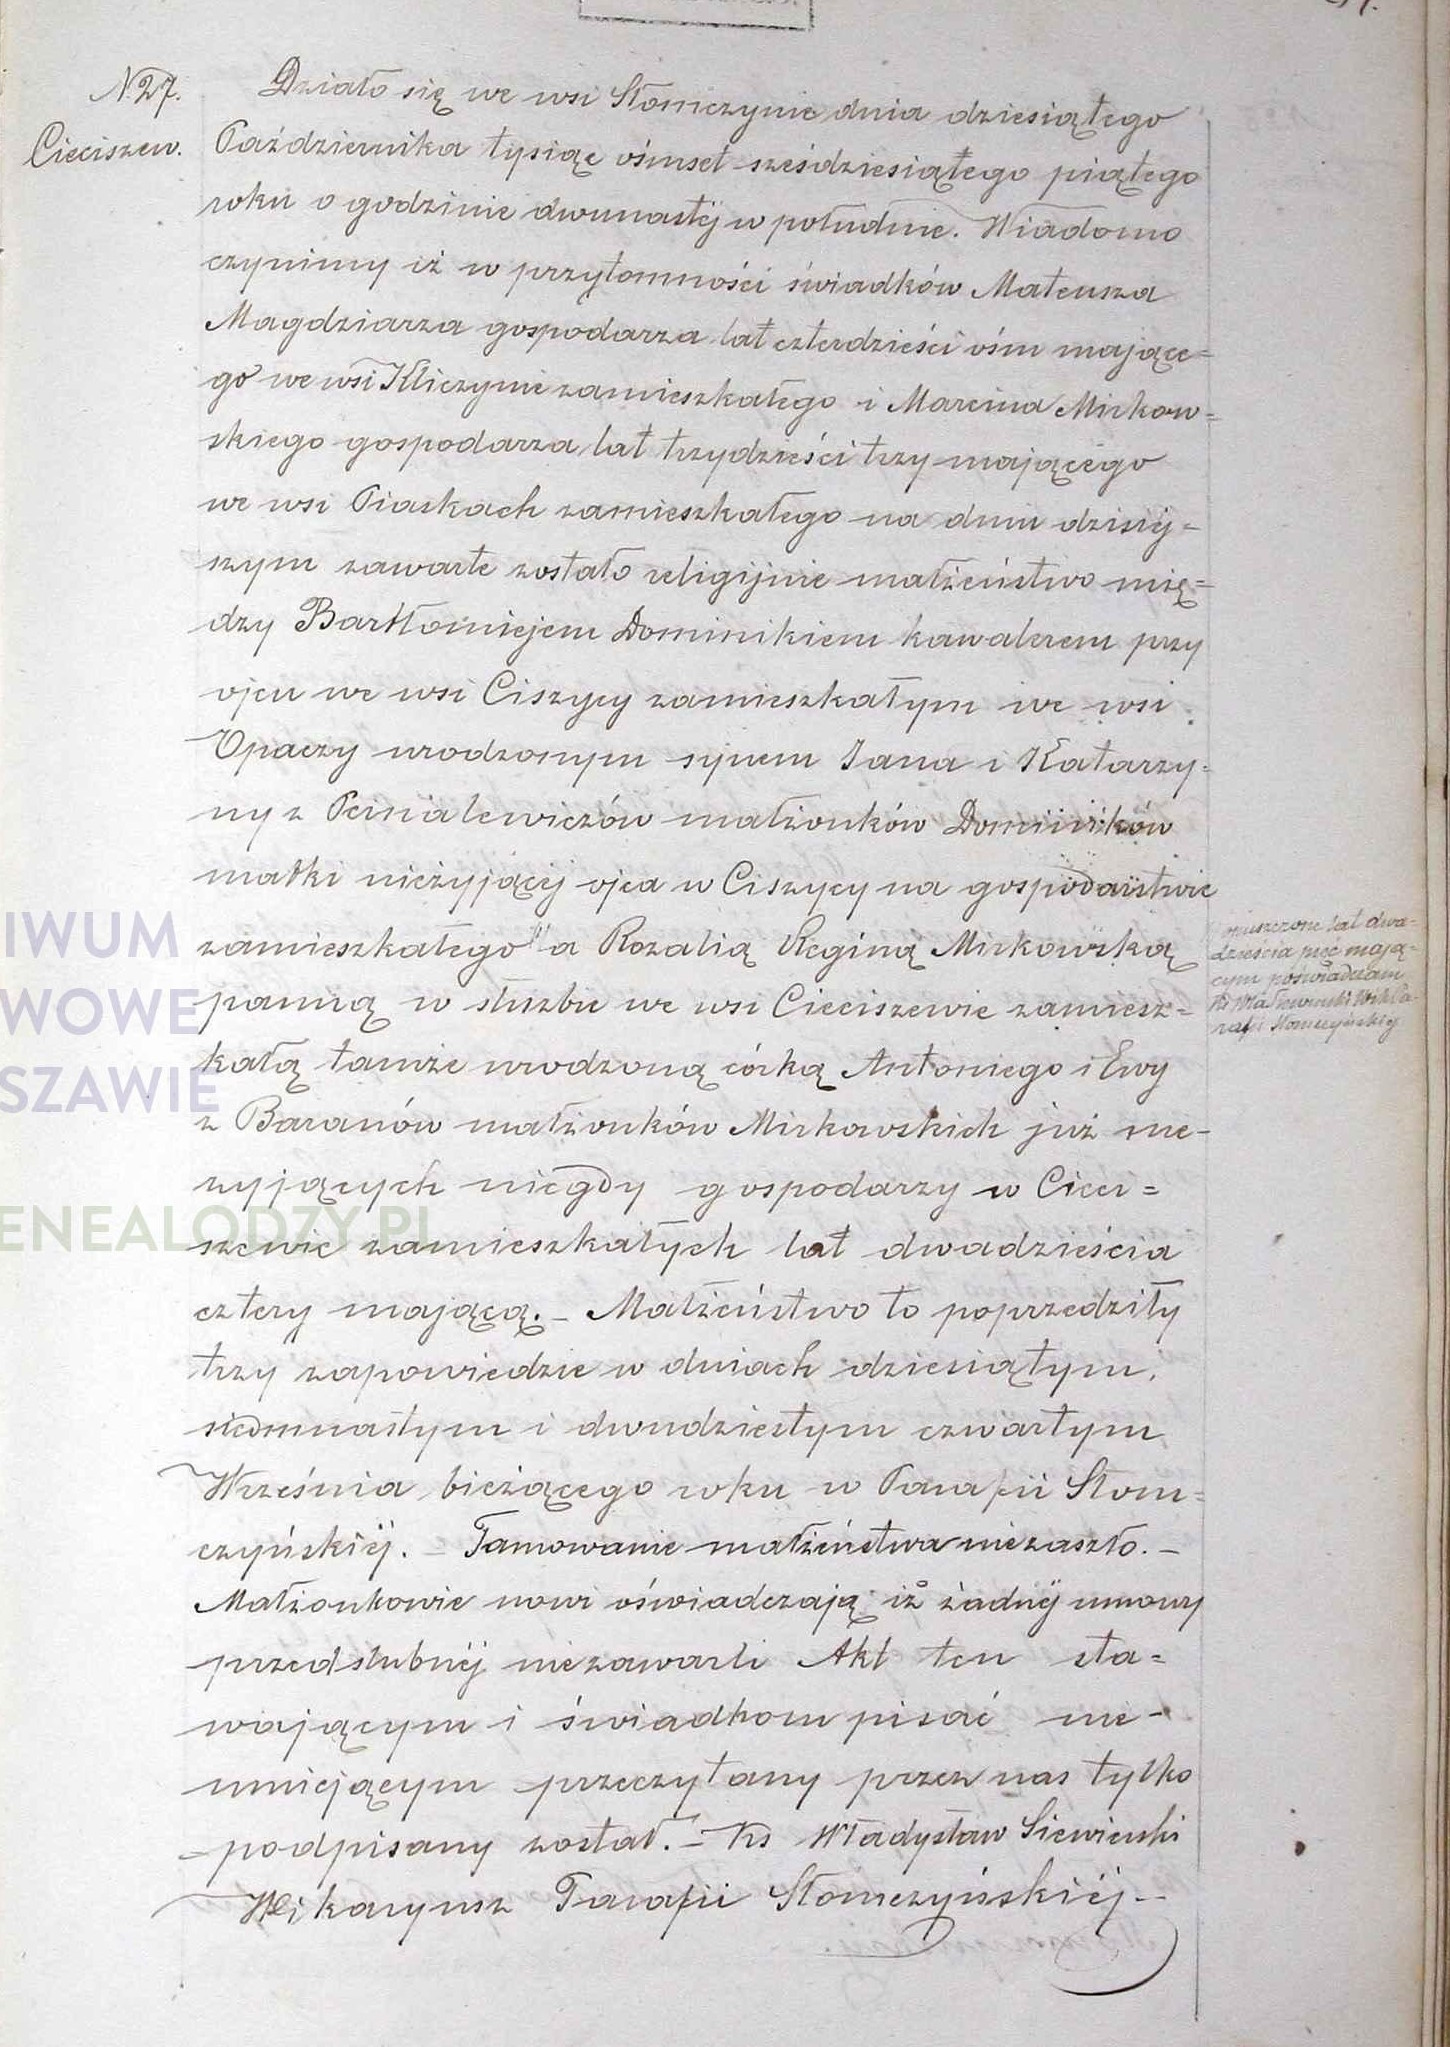 N. 27.
Cieciszew.
Działo się we wsi Słomczynie dnia dziesiątego
Października tysiąc ośmset sześdziesiątego piątego
roku o godzinie dwunastéj w południe. Wiadomo
czynimy iż w przytomności świadków Mateusza
Magdziarza gospodarza lat czterdzieści ośm mające=
go we wsi Kliczynie zamieszkałego i Marcina Mirkow=
skiego gospodarza lat trzydzieści trzy mającego
we wsi Piaskach zamieszkałego na dniu dzisiéj=
szym zawarte zostało religijnie małżeństwo mię=
dzy Bartłomiejem Dominikiem kawalerem przy
ojcu we wsi Ciszycy zamieszkałym we wsi
Opaczy urodzonym synem Jana i Katarzy=
ny z małżonków Dominików
matki nieżyjącéj ojca w Ciszycy na gospodarstwie
zamieszkałego a Rozalią Reginą Mirkowską
panną w służbie we wsi Cieciszewie zamiesz=
kałą tamże urodzoną córką Antoniego i Ewy
z Baranów małżonków Mirkowskich już nie-
żyjących niegdy gospodarzy w Cieci=
szewie zamieszkałych lat dwadzieścia
cztery mającą. – Małżeństwo to poprzedziły
trzy zapowiedzie w dniach dziesiątym,
siedmnastym i dwudziestym czwartym
Września bieżącego roku w Parafii Słom=
czyńskiéj. – Tamowanie małżeństwa niezaszło. –
Małżonkowie nowi oświadczają iż żadnéj umowy
przedślubnéj niezawarli Akt ten sta=
wającym i świadkom pisać nie-
umiejącym przeczytany przez nas tylko
podpisany został. – Ks Władysław
Wikaryusz Parafii Słomczyńskiéj –
opuszczone lat dwa-
dzieścia pięć mają-
cym poświadczam
Ks Wik Pa-
rafii Słomczyńskiéj
IWUM
WOWE
SZAWIE
ENEALODZY.PL